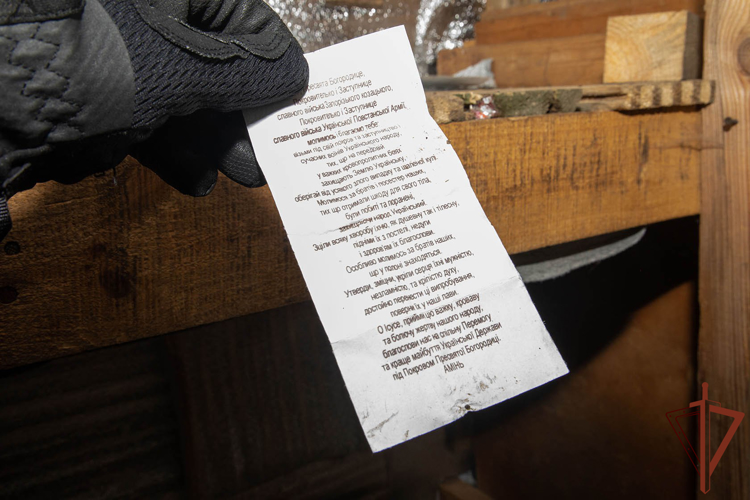 Пресвята Богородице,
Покровителько і Заступнице
славного війська Запорозького козацького,
Покровителько і Заступнице
славного війська Української Повстанської Армії,
молимось і благаємо тебе:
візьми під свій покров та заступництво
сучасних воїнів Українського народу,
тих, що на передовій
у важких кровопролитних боях
захищають Землю Українську,
оберігай від усякого злого випадку та шаленої кулі.
Молимося за братів і посестер наших,
тих що отримали шкоду для свого тіла,
були побиті та поранені,
захищаючи народ Український.
Зціли всяку хворобу їхню, як душевну так і тілесну,
підніми їх з постелі, недуги
і здоров'ям їх благослови.
Особливо молимось за братів наших,
що у полоні знаходяться.
Утверди, зміцни, укріпи серця їхні мужністю,
незламністю, та кріпістю духу,
достойно перенести ці випробування,
поверни їх у наші лави.
О Ісусе, прийми цю важку, криваву
та болючу жертву нашого народу,
благослови нас на спільну Перемогу
та краще майбуття Української Держави
під Покровом Пресвятої Богородиці.
АМІНЬ